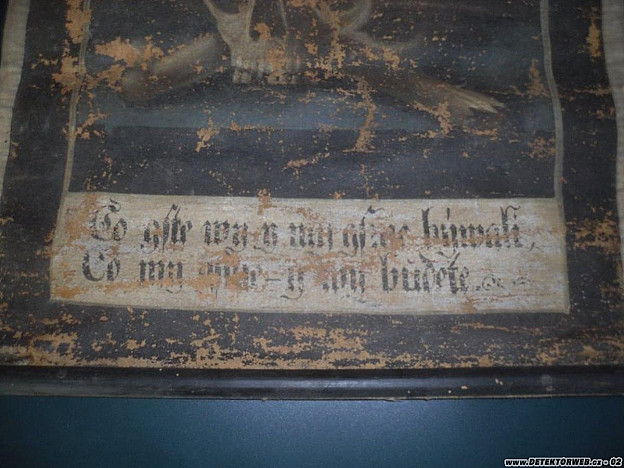 Co gste wy y my gsme býwali,
Co my gsme – y wy budete.
www.DETEKTORWEB.cz - 02